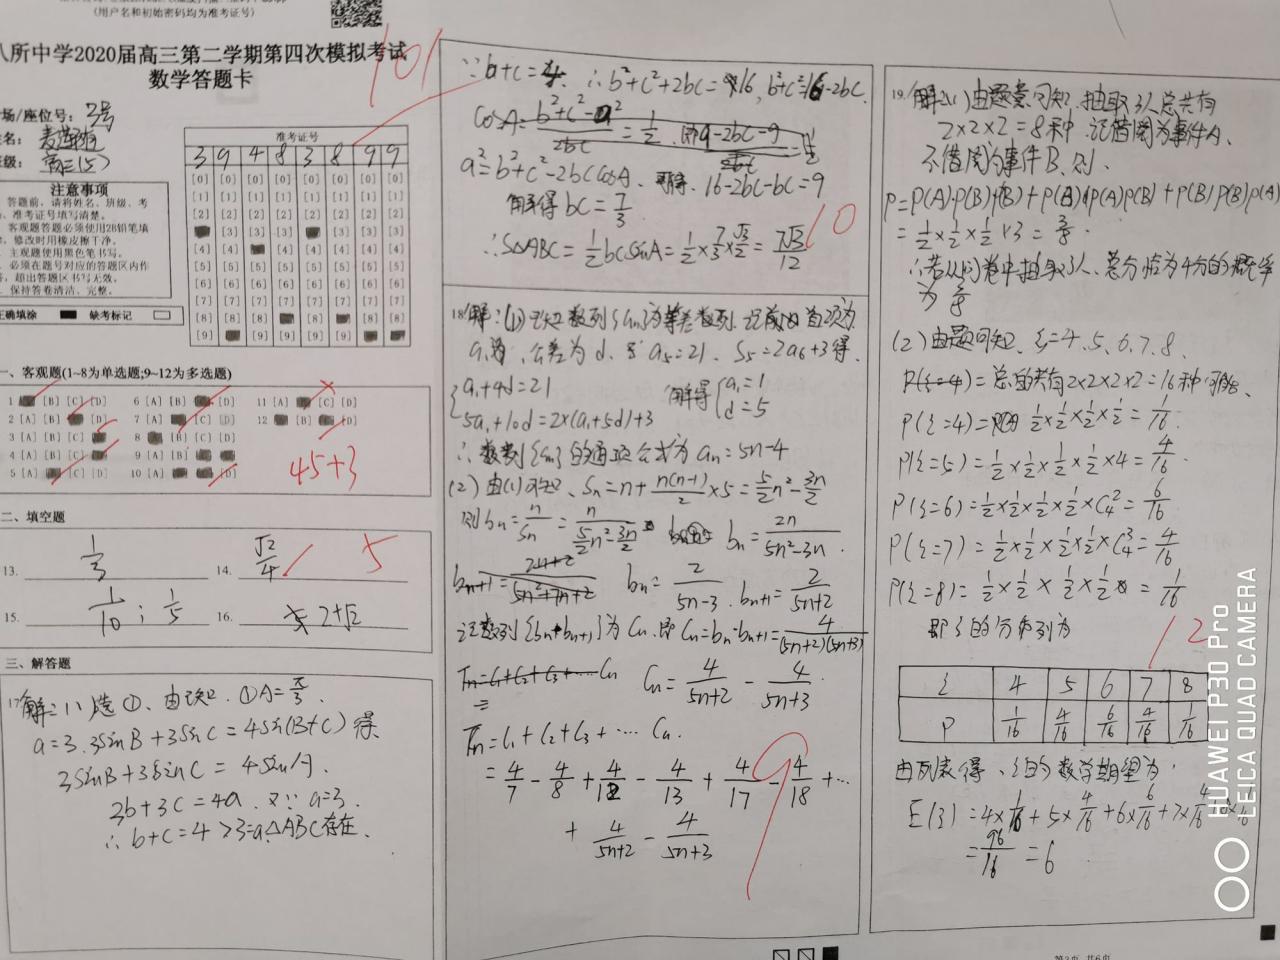 (用户名和初始密码均为准考证号)
八所中学2020届高三第二学期第四次模拟考试
数学答题卡
101
场/座位号: 3号
名:
级: 高三(5)
注意事项
答题前,请将姓名、班级、考
准考证号填写清楚。
客观题答题必须使用2B铅笔填
修改时用橡皮擦干净。
主观题使用黑色笔书写。
必须在题号对应的答题区内作
超出答题区书写无效。
保持答卷清洁、完整。
正确填涂 缺考标记
准考证号
3 9 4 8 3 8 9 9
[0] [0] [0] [0] [0] [0] [0] [0]
[1] [1] [1] [1] [1] [1] [1] [1]
[2] [2] [2] [2] [2] [2] [2] [2]
[3] [3] [3] [3] [3] [3]
[4] [4] [4] [4] [4] [4] [4]
[5] [5] [5] [5] [5] [5] [5] [5]
[6] [6] [6] [6] [6] [6] [6] [6]
[7] [7] [7] [7] [7] [7] [7] [7]
[8] [8] [8] [8] [8] [8]
[9] [9] [9] [9] [9]
一、客观题(1~8为单选题;9~12为多选题)
1 [B] [C] [D] 6 [A] [B] [D] 11 [A] [C] [D]
2 [A] [B] [D] 7 [A] [C] [D] 12 [D]
3 [A] [B] [C] 8 [B] [C] [D]
4 [A] [B] [C] 9 [A] [B]
5 [A] [C] [D] 10 [A] [D]
45+3
二、填空题
13. 1/3 14. √2/4 5
15. 1/10 ; 1/5 16. 2+√2
三、解答题
17解:(1)选①、由已知. ①A=π/3
a=3. 3sinB+3sinC=4sin(B+C) 得
3sinB+3sinC=4sinA.
3b+3c=4a. 又∵a=3.
∴b+c=4>3=a.△ABC存在.
∵b+c=4. ∴b²+c²+2bc=16, b²+c²=16-2bc.
cosA=(b²+c²-a²)/2bc=1/2
a²=b²+c²-2bccosA. 可得. 16-2bc-bc=9
解得bc=7/3
∴S△ABC=1/2bcsinA=1/2×7/3×√3/2=7√3/12
10
18解:(1)记数列{an}为等差数列.
公差为d. a5=21. S5=2a6+3得.
{a1+4d=21
5a1+10d=2×(a1+5d)+3
解得{a1=1
d=5
∴数列{an}的通项公式为an=5n-4
(2)由(1)可知、Sn=n+n(n-1)/2×5=5/2n²-3n/2
则bn=n/Sn=n/(5/2n²-3n/2) bn=2n/(5n²-3n).
bn=2/(5n-3). bn+1=2/(5n+2)
记数列{bn·bn+1}为Cn.即Cn=bn·bn+1=4/(5n+2)(5n+3)
Cn=4/(5n+2)-4/(5n+3).
Tn=C1+C2+C3+…Cn.
=4/7-4/8+4/12-4/13+4/17-4/18+…
+4/(5n+2)-4/(5n+3)
9
19.解:(1)由题意可知.抽取3人总共有
2×2×2=8种.记借阅为事件A.
不借阅为事件B.则.
P=P(A)·P(B)·P(B)+P(B)P(A)P(B)+P(B)P(B)P(A)
=1/2×1/2×1/2×3=3/8.
∴若从问卷中抽取3人、总分恰为4分的概率
为3/8
(2)由题可知、ξ=4、5、6、7、8、
总的共有2×2×2×2=16种可能、
P(ξ=4)=1/2×1/2×1/2×1/2=1/16.
P(ξ=5)=1/2×1/2×1/2×1/2×4=4/16.
P(ξ=6)=1/2×1/2×1/2×1/2×C₄²=6/16
P(ξ=7)=1/2×1/2×1/2×1/2×C₄³=4/16
P(ξ=8)=1/2×1/2×1/2×1/2=1/16
即ξ的分布列为
12
ξ 4 5 6 7 8
P 1/16 4/16 6/16 4/16 1/16
由列表得、ξ的数学期望为:
E(ξ)=4×1/16+5×4/16+6×6/16+7×4/16
=96/16=6
HUAWEI P30 Pro
LEICA QUAD CAMERA